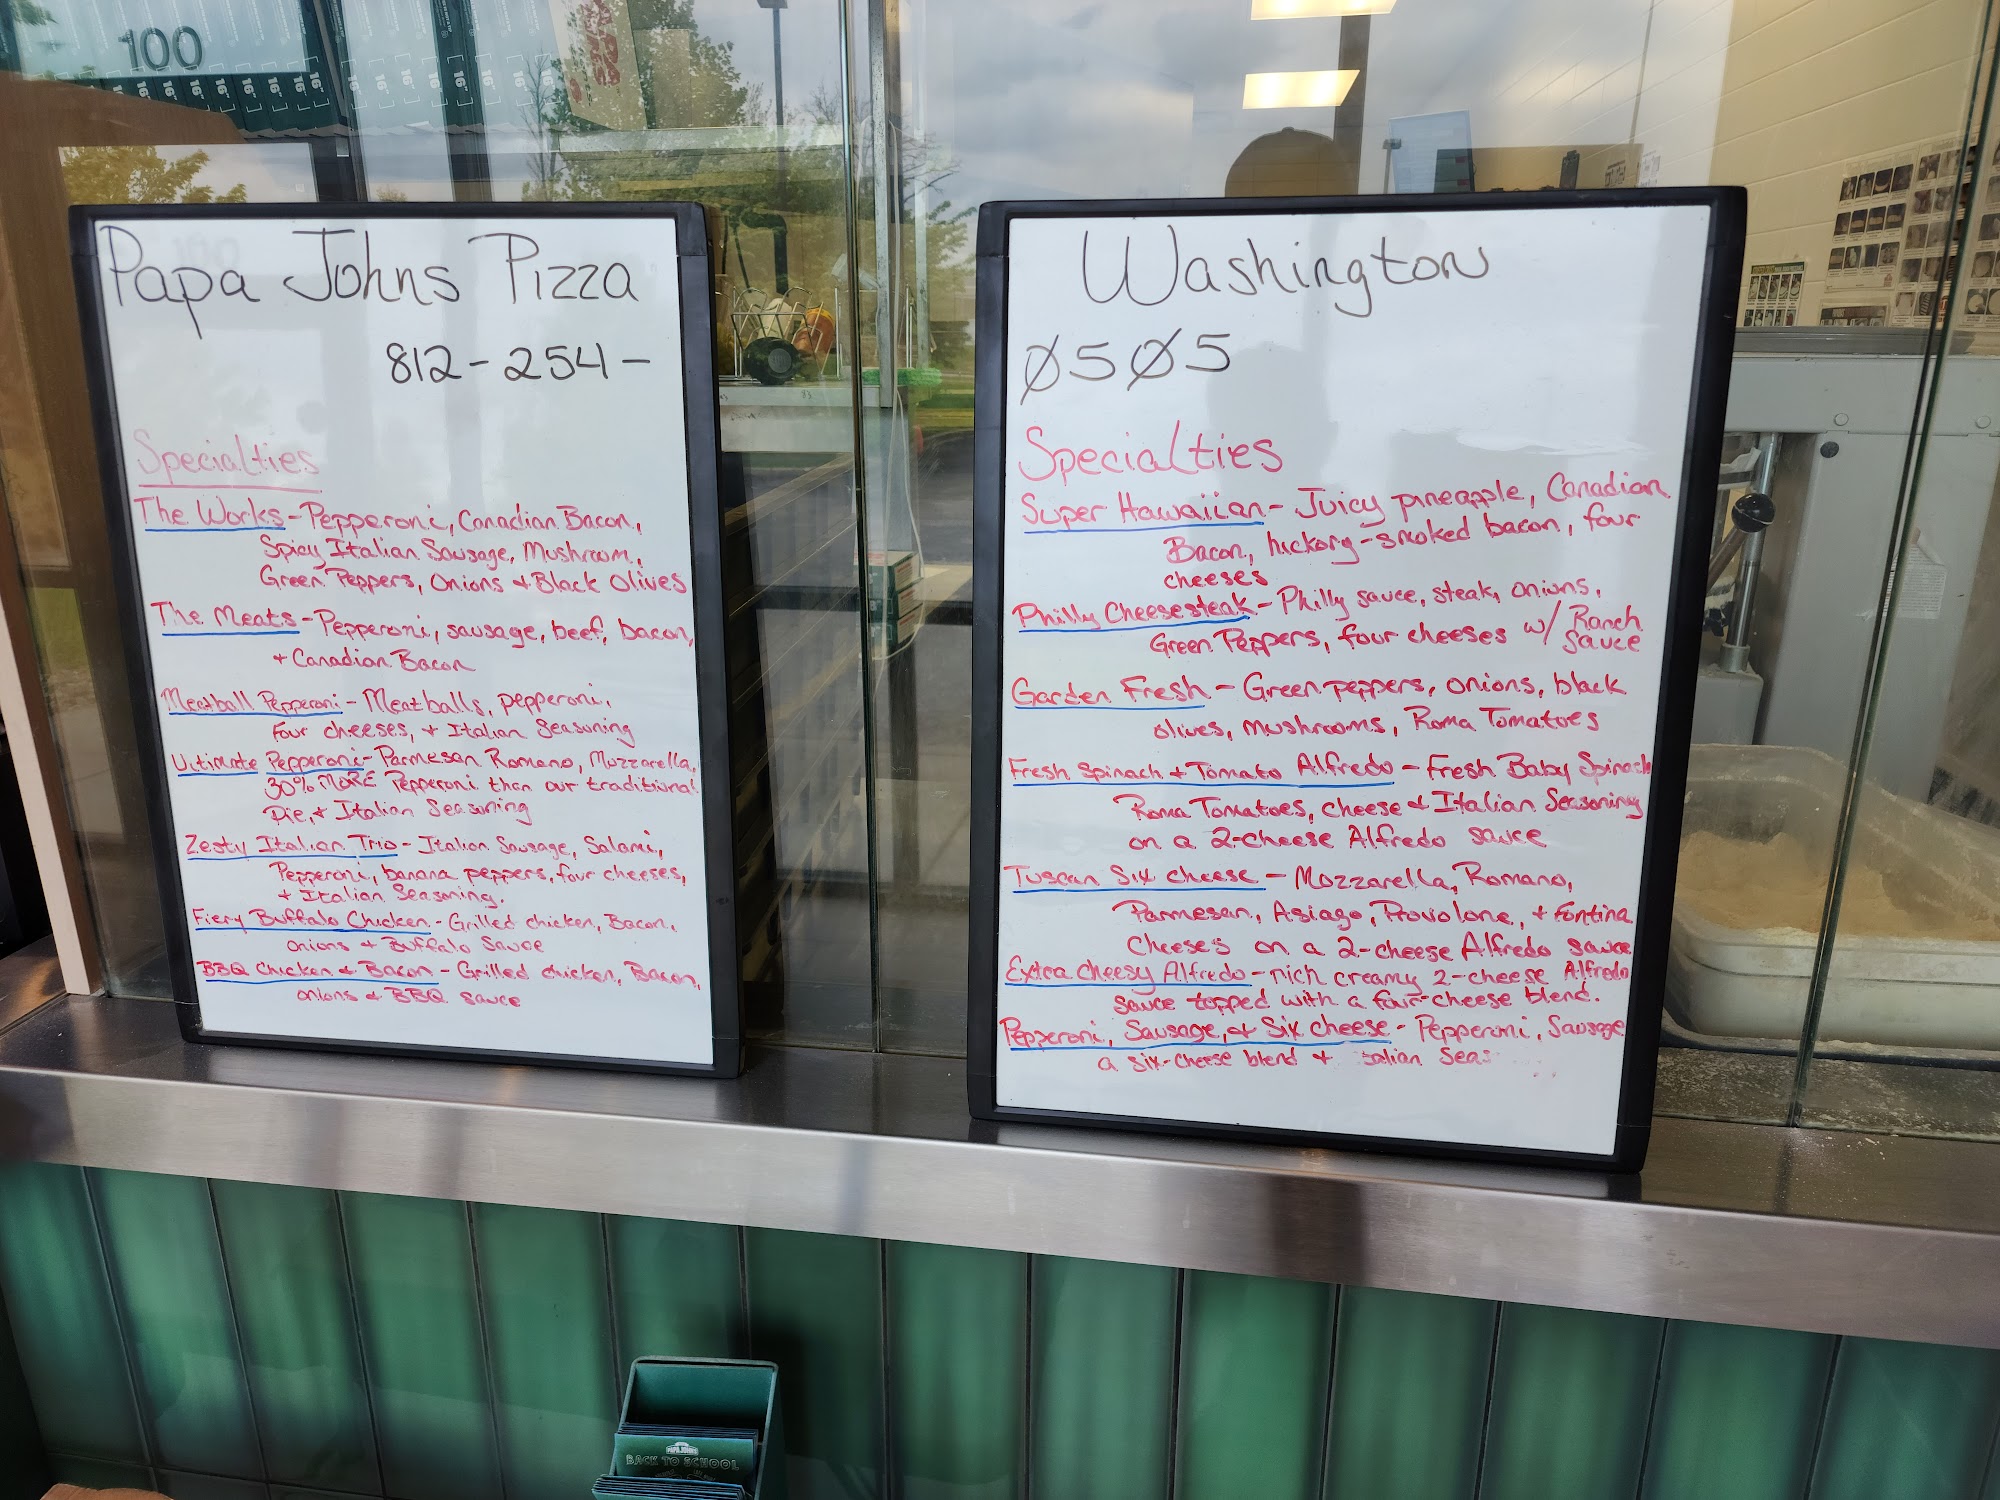 100
16"
16"
16"
16"
16"
16"
16"
Papa Johns Pizza
812-254-
Specialties
The Works - Pepperoni, Canadian Bacon,
Spicy Italian Sausage, Mushroom,
Green Peppers, Onions + Black Olives
The Meats - Pepperoni, sausage, beef, bacon,
+ Canadian Bacon
Meatball Pepperoni - Meatballs, pepperoni,
four cheeses, + Italian Seasoning
Ultimate Pepperoni - Parmesan Romano, Mozzarella,
30% MORE Pepperoni than our traditional
Pie, + Italian Seasoning
Zesty Italian Trio - Italian Sausage, Salami,
Pepperoni, banana peppers, four cheeses,
+ Italian Seasoning.
Fiery Buffalo Chicken - Grilled chicken, Bacon,
onions + Buffalo Sauce
BBQ Chicken + Bacon - Grilled chicken, Bacon,
onions + BBQ sauce
Washington
Ø5Ø5
Specialties
Super Hawaiian - Juicy pineapple, Canadian
Bacon, hickory-smoked bacon, four
cheeses
Philly Cheesesteak - Philly sauce, steak, onions,
Green Peppers, four cheeses w/ Ranch
Sauce
Garden Fresh - Green peppers, onions, black
olives, mushrooms, Roma Tomatoes
Fresh Spinach + Tomato Alfredo - Fresh Baby Spinach
Roma Tomatoes, cheese + Italian Seasoning
on a 2-cheese Alfredo sauce
Tuscan Six cheese - Mozzarella, Romano,
Parmesan, Asiago, Provolone, + fontina
Cheeses on a 2-cheese Alfredo sauce
Extra cheesy Alfredo - rich creamy 2-cheese Alfredo
sauce topped with a four-cheese blend.
Pepperoni, Sausage, + Six cheese - Pepperoni, Sausage
a six-cheese blend + talian Seas
PAPA JOHNS
BACK TO SCHOOL